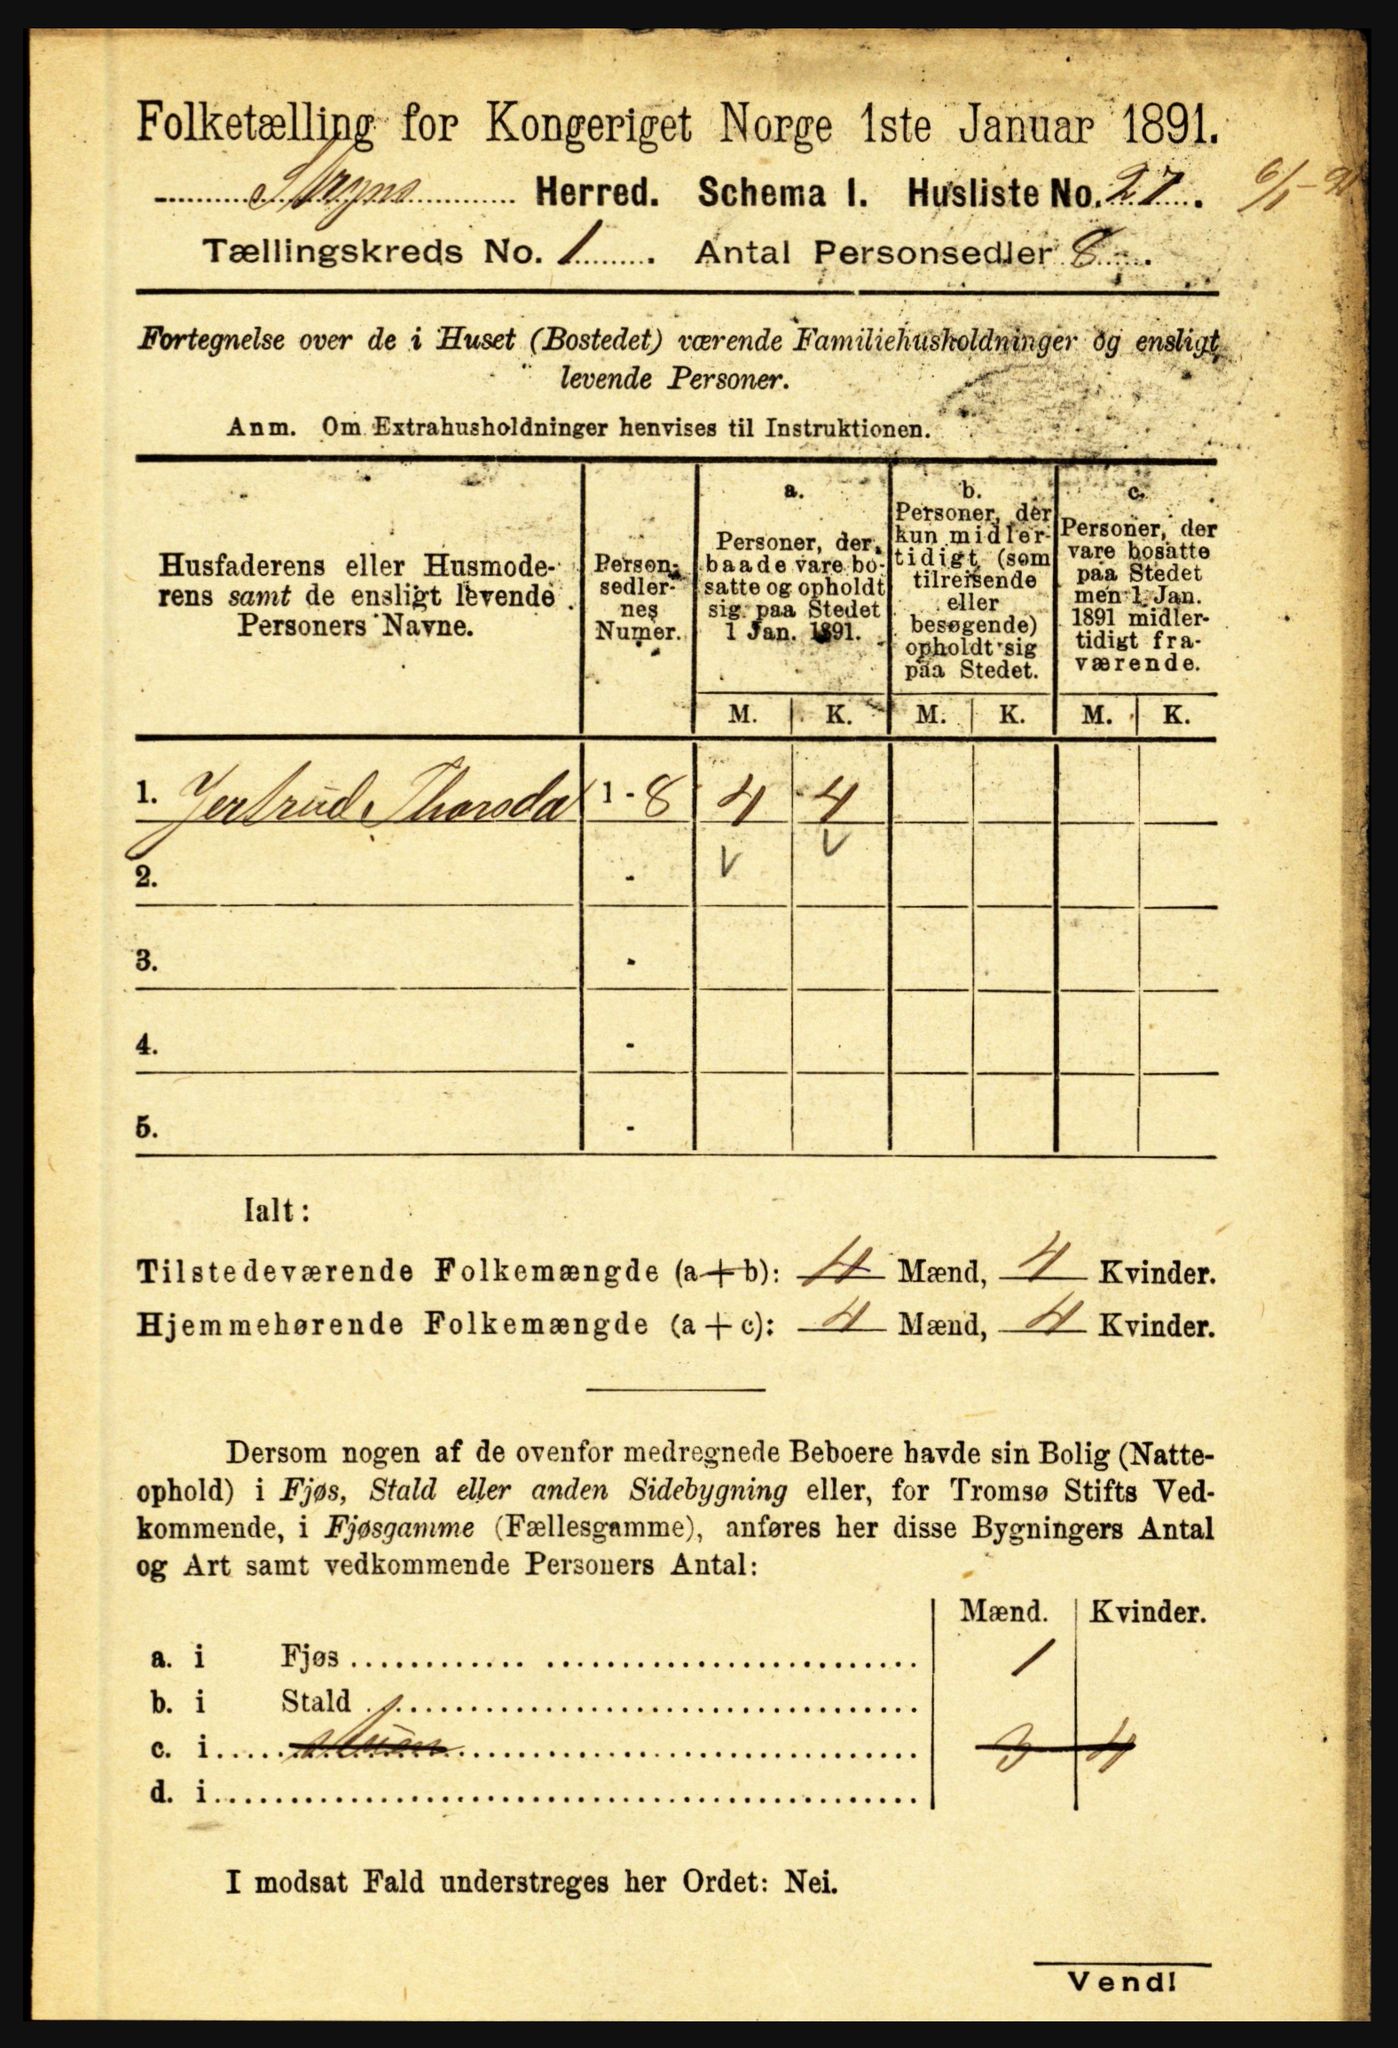 Folketælling for Kongeriget Norge 1ste Januar 1891.
Stryns Herred. Schema I. Husliste No. 27. 6/1-91
Tællingskreds No. 1. Antal Personsedler 8.
Fortegnelse over de i Huset (Bostedet) værende Familiehusholdninger og ensligt
levende Personer.
Anm. Om Extrahusholdninger henvises til Instruktionen.
Husfaderens eller Husmode-
rens samt de ensligt levende
Personers Navne.
Person-
sedler-
nes
Numer.
a.
Personer, der
baade vare bo-
satte og opholdt
sig paa Stedet
1 Jan. 1891.
b.
Personer, der
kun midler-
tidigt (som
tilreisende
eller
besøgende)
opholdt sig
paa Stedet.
c.
Personer, der
vare bosatte
paa Stedet
men 1 Jan.
1891 midler-
tidigt fra-
værende.
M. K. M. K. M. K.
1. Jertrud Thorsda 1 - 8 4 4
2. -
3. -
4. -
5. -
Ialt:
Tilstedeværende Folkemængde (a+b): 4 Mænd, 4 Kvinder.
Hjemmehørende Folkemængde (a+c): 4 Mænd, 4 Kvinder.
Dersom nogen af de ovenfor medregnede Beboere havde sin Bolig (Natte-
ophold) i Fjøs, Stald eller anden Sidebygning eller, for Tromsø Stifts Ved-
kommende, i Fjøsgamme (Fællesgamme), anføres her disse Bygningers Antal
og Art samt vedkommende Personers Antal:
Mænd. Kvinder.
a. i Fjøs 1
b. i Stald
c. i 3 4
d. i
I modsat Fald understreges her Ordet: Nei.
Vend!